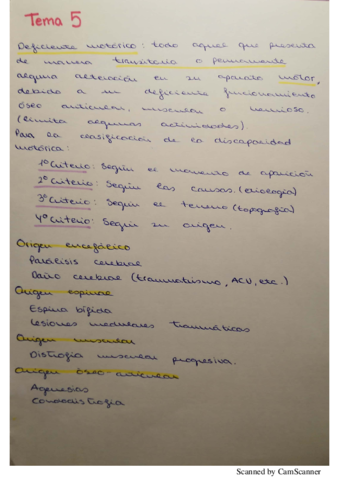 Tema 5
Deficiente motórico: todo aquel que presenta
de manera transitoria o permanente
alguna alteración en su aparato motor,
debido a un deficiente funcionamiento
óseo articular, muscular o nervioso.
(limita algunas actividades).
Para la clasificación de la discapacidad
motórica:
1º Criterio: Según el momento de aparición
2º Criterio: Según las causas. (etiología)
3º Criterio: Según el terreno (topografía)
4º Criterio: Según su origen.
Origen encefático
Parálisis cerebral
Daño cerebral (traumatismo, ACV, etc.)
Origen espinal
Espina bífida
Lesiones medulares traumáticas
Origen muscular
Distrofia muscular progresiva.
Origen óseo-articular
Agenesias
Condodistrofia
Scanned by CamScanner